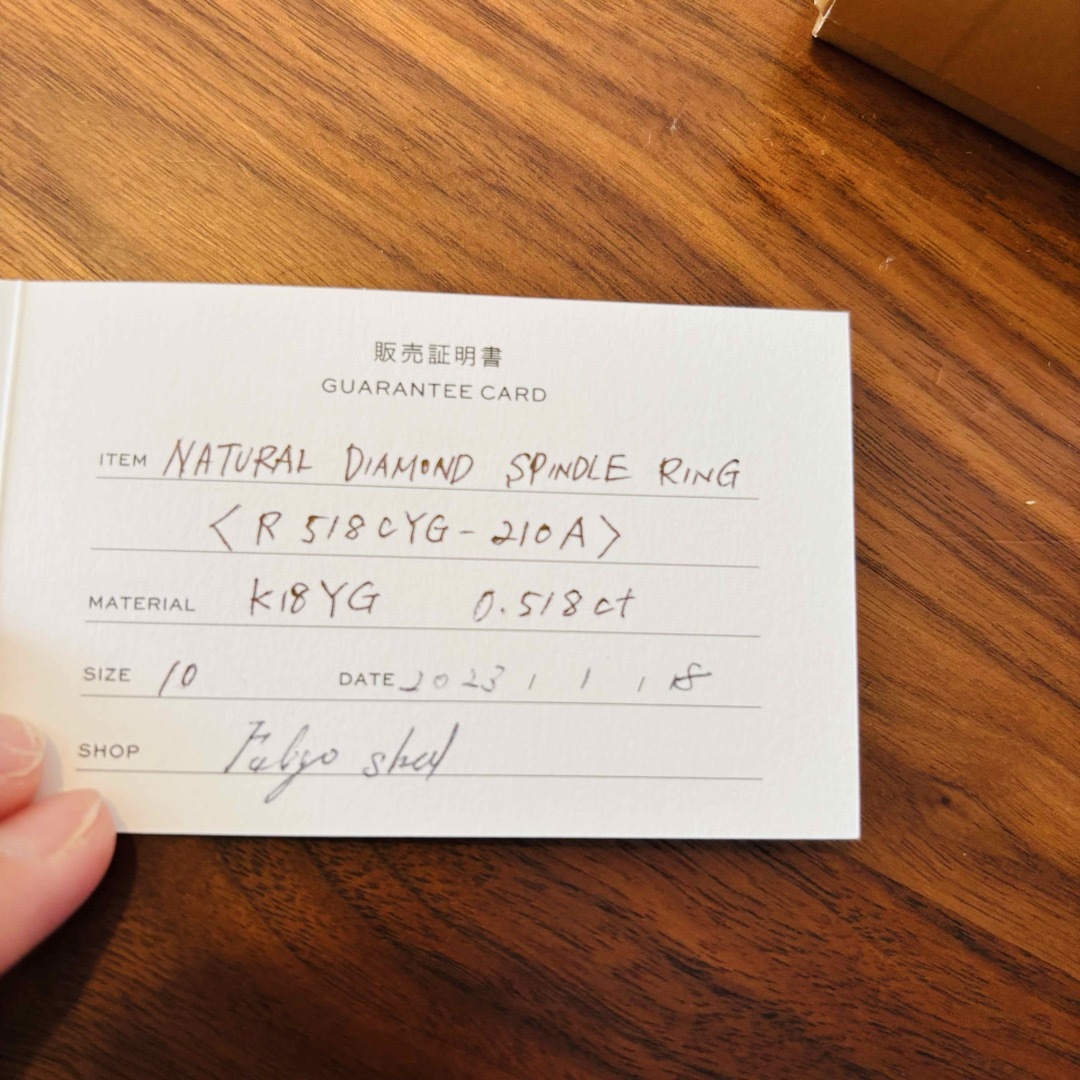 販売証明書
GUARANTEE CARD
ITEM NATURAL DIAMOND SPINDLE RING
<R518CYG-210A>
MATERIAL K18YG 0.518ct
SIZE 10 DATE 2023, 1, 8
SHOP